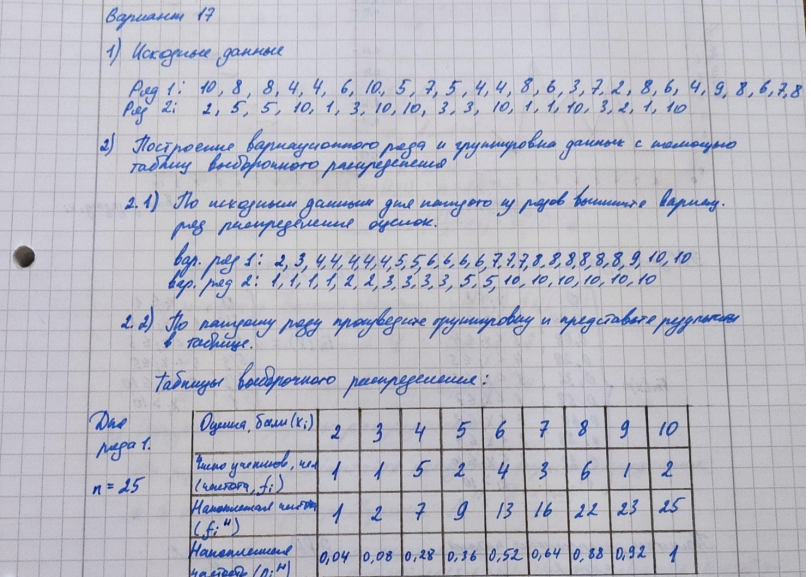 Вариант 17
1) Исходные данные
Ряд 1: 10, 8, 8, 4, 4, 6, 10, 5, 7, 5, 4, 4, 8, 6, 3, 7, 2, 8, 6, 4, 9, 8, 6, 7, 8
Ряд 2: 2, 5, 5, 10, 1, 3, 10, 10, 3, 3, 10, 1, 1, 10, 3, 2, 1, 10
2) Построение вариационного ряда и группировка данных с помощью
таблиц выборочного распределения
2.1) По исходным данным для каждого из рядов выпишите вариац.
ряд распределения оценок.
вар. ряд 1: 2, 3, 4,4,4,4,4,5,5,6,6,6,6,7,7,7,8,8,8,8,8,8,9,10,10
вар. ряд 2: 1,1,1,1,2,2,3,3,3,3,5,5,10,10,10,10,10,10
2.2) По каждому ряду произведите группировку и представьте результаты
в таблице.
Таблицы выборочного распределения:
Для
ряда 1.
n = 25
Оценка, балл (xi) 2 3 4 5 6 7 8 9 10
Число учеников, чел
(частота, fi) 1 1 5 2 4 3 6 1 2
Накопленная частота
(fiн) 1 2 7 9 13 16 22 23 25
Накопленная
частость (piн) 0,04 0,08 0,28 0,36 0,52 0,64 0,88 0,92 1